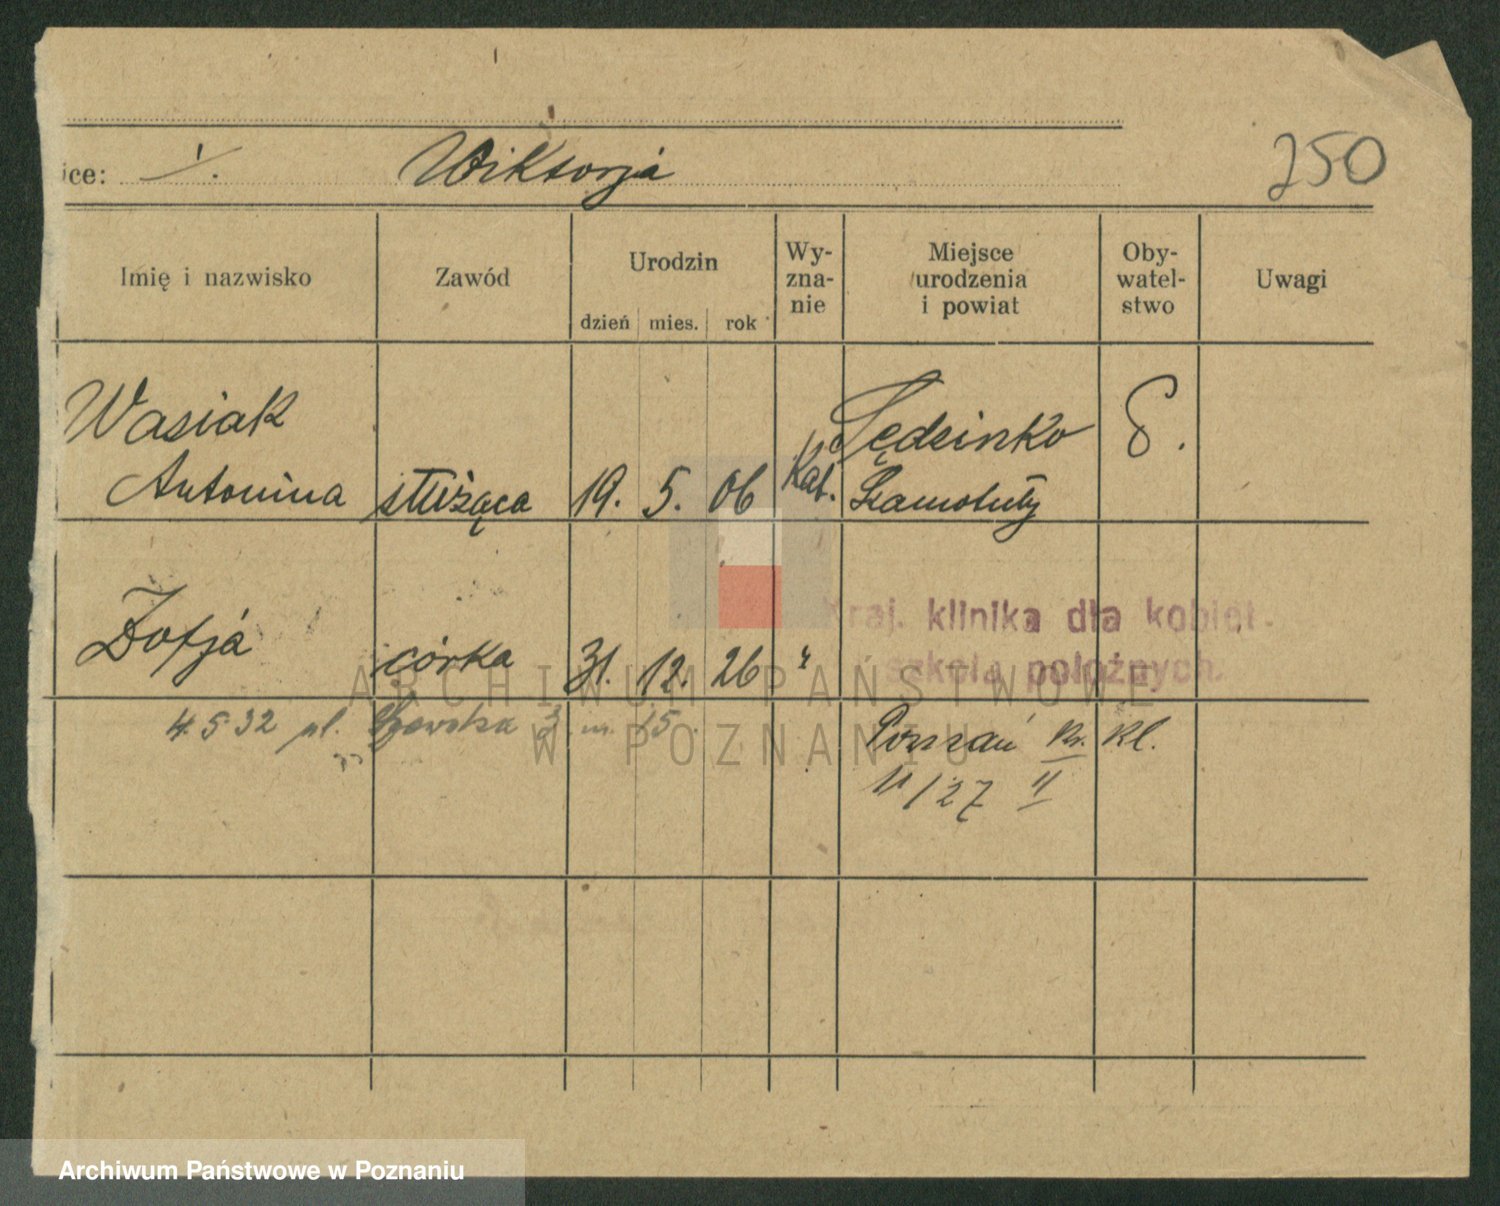 ice: /. Wiktorja
250
Imię i nazwisko
Zawód
Urodzin
dzień mies. rok
Wy-
zna-
nie
Miejsce
urodzenia
i powiat
Oby-
watel-
stwo
Uwagi
Wasiak
Antonina służąca 19. 5. 06 Kat.
Sędzinko
Szamotuły
Zofja córka 31. 12. 26 "
Kraj. klinika dla kobiet
szkoła położnych.
4.5.32 pl. 3 m. 15.
Poznań Kr. Kl.
11/27 II
ARCHIWUM PAŃSTWOWE
W POZNANIU
Archiwum Państwowe w Poznaniu